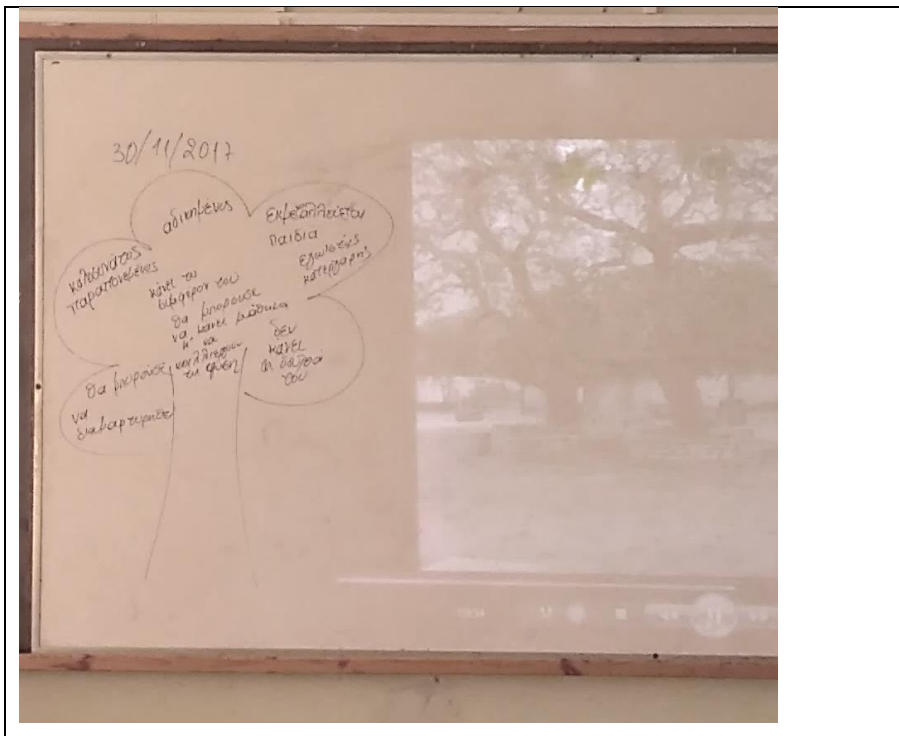 30/11/2017
αδικημένος
εκμεταλλεύεται
παιδιά
εγωιστής
κατεργάρης
παραπονεμένος
κάνει το
συμφέρον του
θα μπορούσε
να κάνει μάθημα
κ' να
καλλιεργούν
τη φύση
δεν
κάνει
τη δουλειά
του
θα μπορούσε
να
διαμαρτυρηθεί